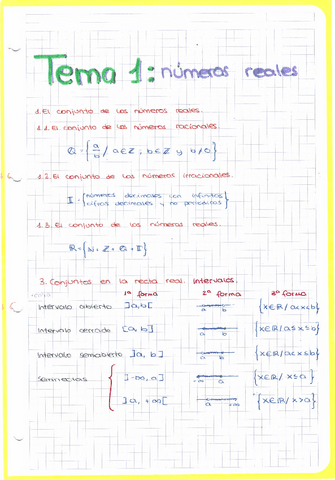 Tema 1: números reales
1. El conjunto de los números reales.
1.1. El conjunto de los números racionales.
Q = { a/b / a∈Z ; b∈Z y b≠0 }
1.2. El conjunto de los números irracionales.
I = { números decimales con infinitas cifras decimales y no periódicos }
1.3. El conjunto de los números reales.
R = { N + Z + Q + I }
3. Conjuntos en la recta real. Intervalos.
1ª forma 2ª forma 3ª forma
Intervalo abierto ]a,b[ a b {x∈R/ a<x<b}
Intervalo cerrado [a, b] a b {x∈R/ a≤x≤b}
Intervalo semiabierto ]a, b] a b {x∈R/ a<x≤b}
Semirrectas ]-∞, a] -∞ a {x∈R/ x≤a}
]a, +∞[ a +∞ {x∈R/ x>a}